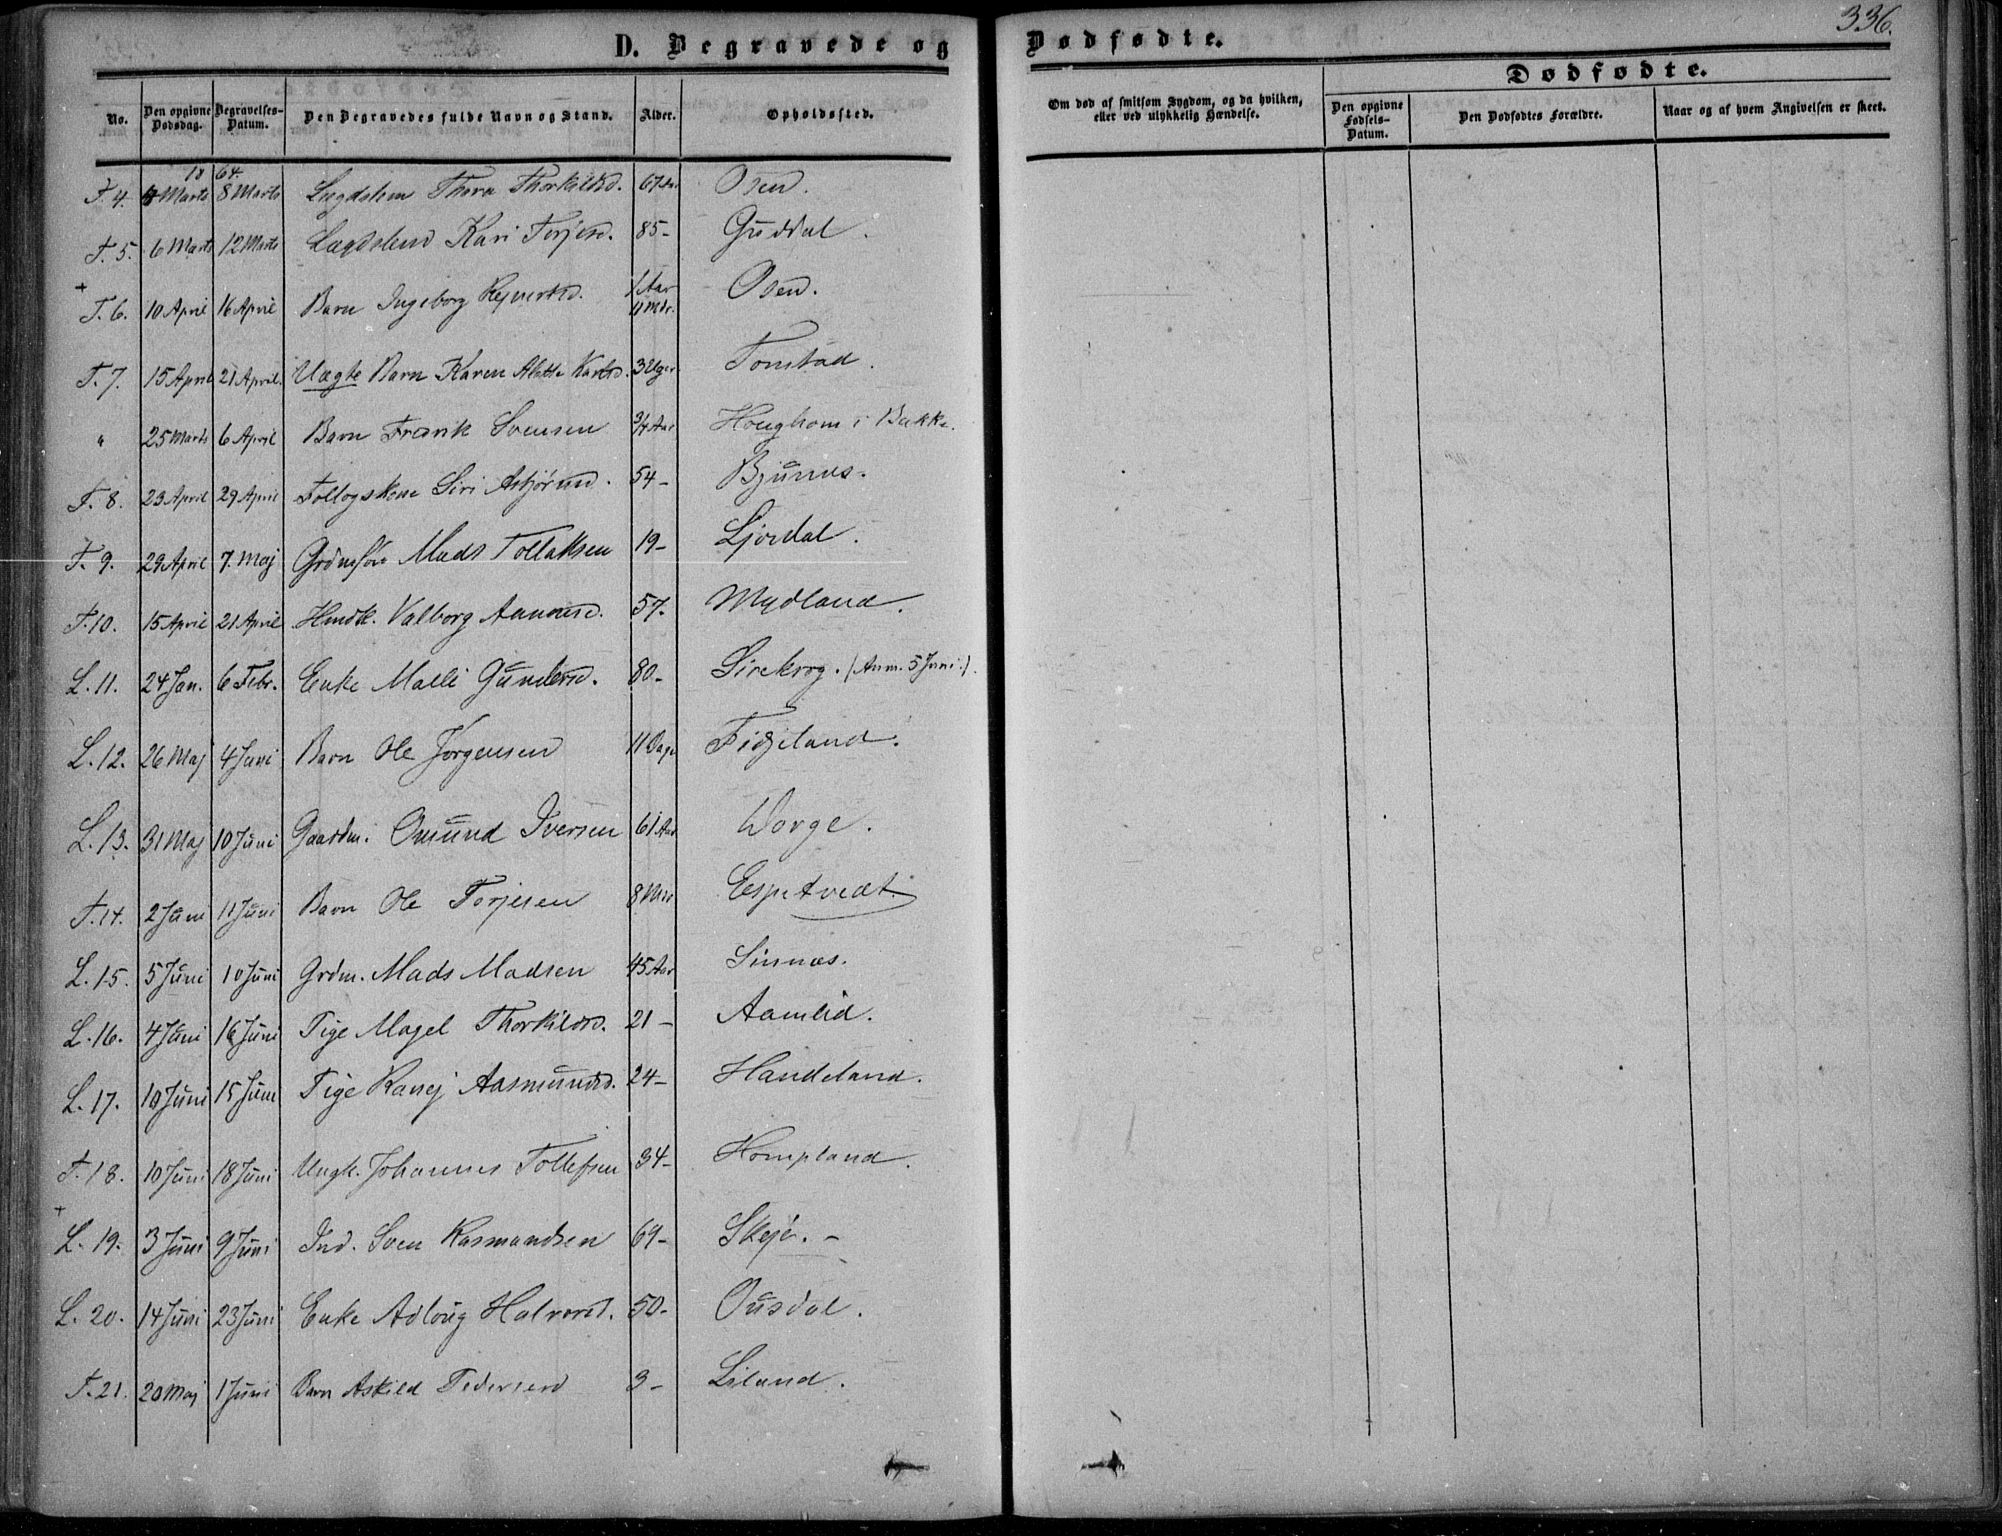 336.
D. Begravede og Dødfødte.
Dødfødte.
No. | Den opgivne Dødsdag. | Begravelses-Datum. | Den Begravedes fulde Navn og Stand. | Alder. | Opholdssted. | Om død af smitsom Sygdom, og da hvilken, eller ved ulykkelig Hændelse. | Den opgivne Fødsels-Datum. | Den Dødfødtes Forældre. | Naar og af hvem Angivelsen er skeet.
1864.
T. 4. | 4 Marts | 8 Marts | Lægdslem Thora Thorkildsd. | 67 Aar | Osen.
T. 5. | 6 Marts | 12 Marts | Lægdslem Kari Terjesd. | 85- | Guddal.
+
T. 6. | 10 April | 16 April | Barn Ingeborg | 1 Aar 11 Mdr. | Osen.
T. 7. | 15 April | 21 April. | Uægte Barn Karen Alette | 3 Uger | Tonstad.
" | 25 Marts | 6 April | Barn Frank Svensen | 3/4 Aar | Houghom i Bakke.
T. 8. | 23 April | 29 April | Siri Asbjørnsd. | 54- | Bjunes.
T. 9. | 29 April | 7. Maj | Mads Tollaksen | 19- | Ljosdal.
T. 10. | 15 April | 21 April | Valborg Aanensd. | 57. | Mydland.
L. 11. | 24 Jan. | 6 Febr. | Enke Malli Gundersd. | 80- | Sirekrog. (Anm. 5 Juni.).
L. 12. | 26 Maj | 4 Juni | Barn Ole Jørgensen | 11 Dage | Fidjeland.
L. 13. | 31 Maj | 10 Juni | Gaardm. Omund Iversen | 61 Aar | Dorge.
T. 14. | 2 Juni | 11 Juni | Barn Ole Terjesen | 8 Mdr | Espetvedt.
L. 15. | 5 Juni | 10 Juni | Grdm. Mads Madsen | 45 Aar | Sinnæs.
L. 16. | 4 Juni | 16 Juni | Pige Magel Thorkildsd. | 21- | Aamlid.
L. 17. | 10 Juni | 15 Juni | Pige Ranej Aasmundsd. | 24- | Haudeland.
T. 18. | 10 Juni | 18 Juni | Ungk. Johannes Tollefsen | 34- | Hompland.
+
L. 19. | 3 Juni | 9 Juni | Ind. Sven Rasmundsen | 69- | Skejé. -
L. 20. | 14 Juni | 23 Juni | Enke Adloug Halvorsd. | 50- | Ousdal.
T. 21. | 20 Maj | 1 Juni | Barn Askild Pedersen | 3- | Liland.